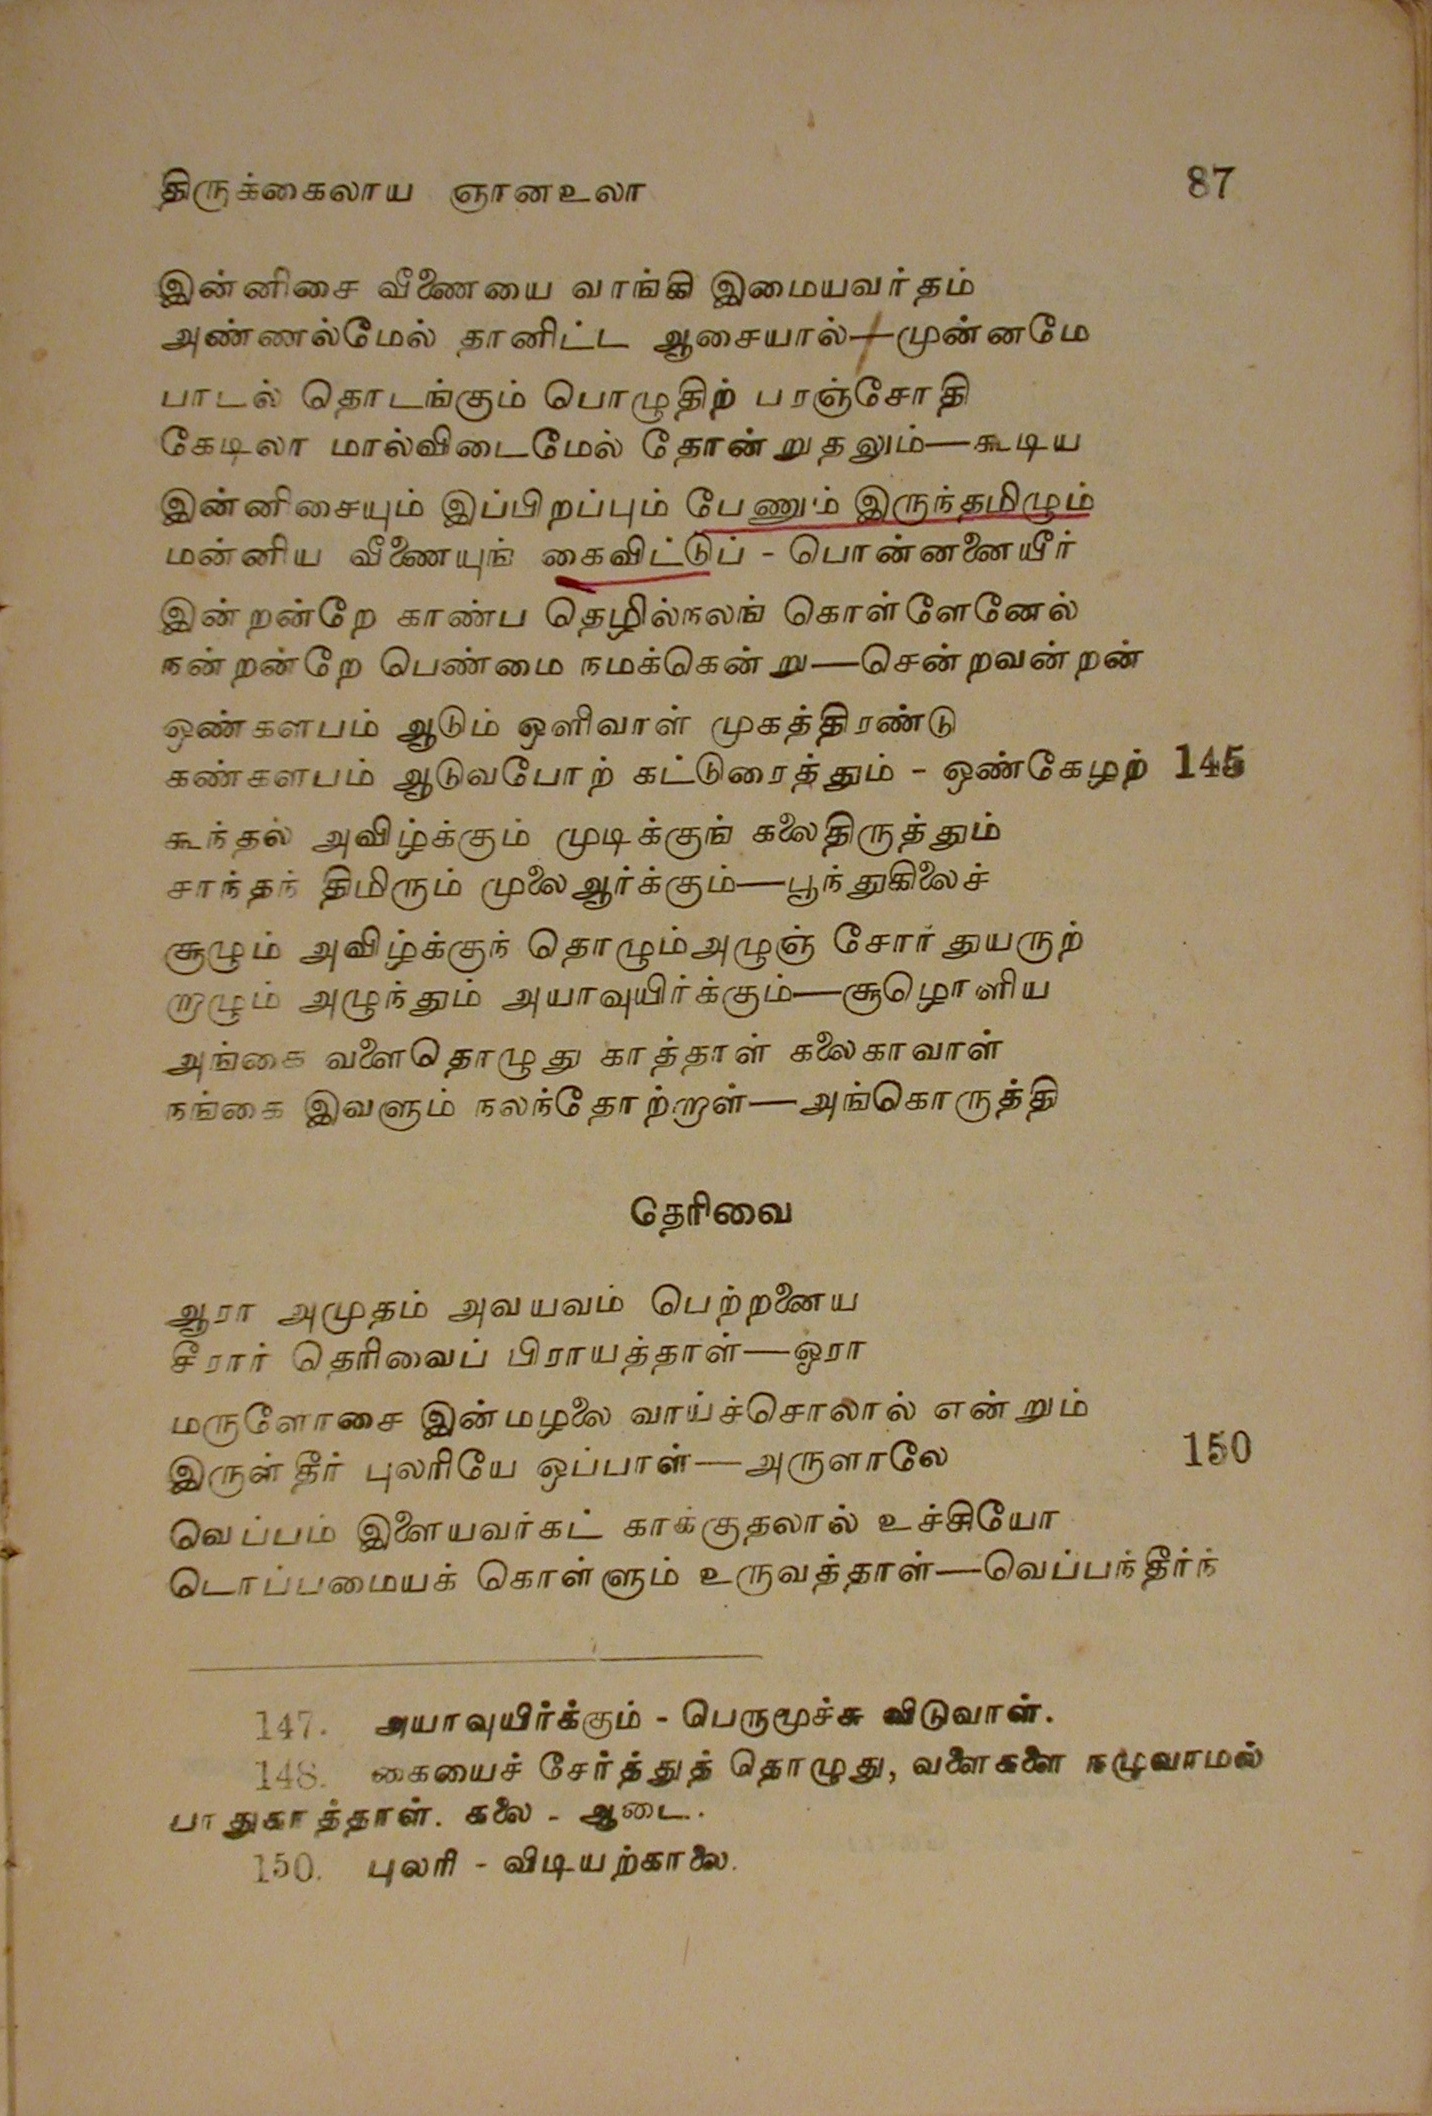 திருக்கைலாய ஞானஉலா 87
இன்னிசை வீணையை வாங்கி இமையவர்தம்
அண்ணல்மேல் தானிட்ட ஆசையால்—முன்னமே
பாடல் தொடங்கும் பொழுதிற் பரஞ்சோதி
கேடிலா மால்விடைமேல் தோன்றுதலும்—கூடிய
இன்னிசையும் இப்பிறப்பும் பேணும் இருந்தமிழும்
மன்னிய வீணையுங் கைவிட்டுப் - பொன்னனையீர்
இன்றன்றே காண்ப தெழில்நலங் கொள்ளேனேல்
நன்றன்றே பெண்மை நமக்கென்று—சென்றவன்றன்
ஒண்களபம் ஆடும் ஒளிவாள் முகத்திரண்டு
கண்களபம் ஆடுவபோற் கட்டுரைத்தும் - ஒண்கேழற் 145
கூந்தல் அவிழ்க்கும் முடிக்குங் கலைதிருத்தும்
சாந்தந் திமிரும் முலைஆர்க்கும்—பூந்துகிலைச்
சூழும் அவிழ்க்குந் தொழும்அழுஞ் சோர் துயருற்
றாழும் அழுந்தும் அயாவுயிர்க்கும்—சூழொளிய
அங்கை வளைதொழுது காத்தாள் கலைகாவாள்
நங்கை இவளும் நலந்தோற்றாள்—அங்கொருத்தி
தெரிவை
ஆரா அமுதம் அவயவம் பெற்றனைய
சீரார் தெரிவைப் பிராயத்தாள்—ஓரா
மருளோசை இன்மழலை வாய்ச்சொலால் என்றும்
இருள்தீர் புலரியே ஒப்பாள்—அருளாலே 150
வெப்பம் இளையவர்கட் காக்குதலால் உச்சியோ
டொப்பமையக் கொள்ளும் உருவத்தாள்—வெப்பந்தீர்ந்
147. அயாவுயிர்க்கும் - பெருமூச்சு விடுவாள்.
148. கையைச் சேர்த்துத் தொழுது, வளைகளை நழுவாமல்
பாதுகாத்தாள். கலை - ஆடை.
150. புலரி - விடியற்காலை.